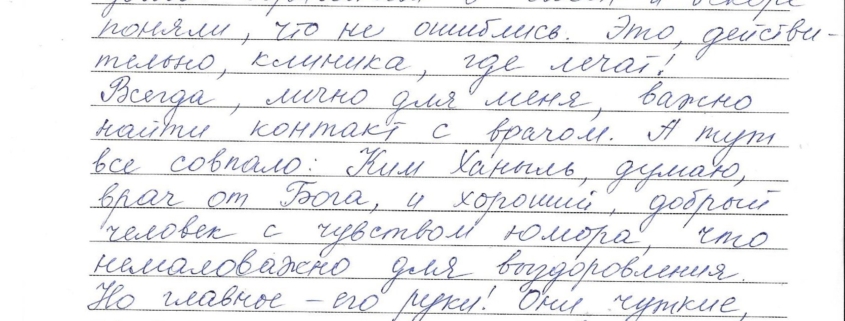 и вскоре
поняли, что не ошиблись. Это, действи-
тельно, клиника, где лечат!
Всегда, лично для меня, важно
найти контакт с врачом. А тут
все совпало: Ким Ханыль, думаю,
врач от Бога, и хороший, добрый
человек с чувством юмора, что
немаловажно для выздоровления.
Но главное – его руки! Они чуткие,